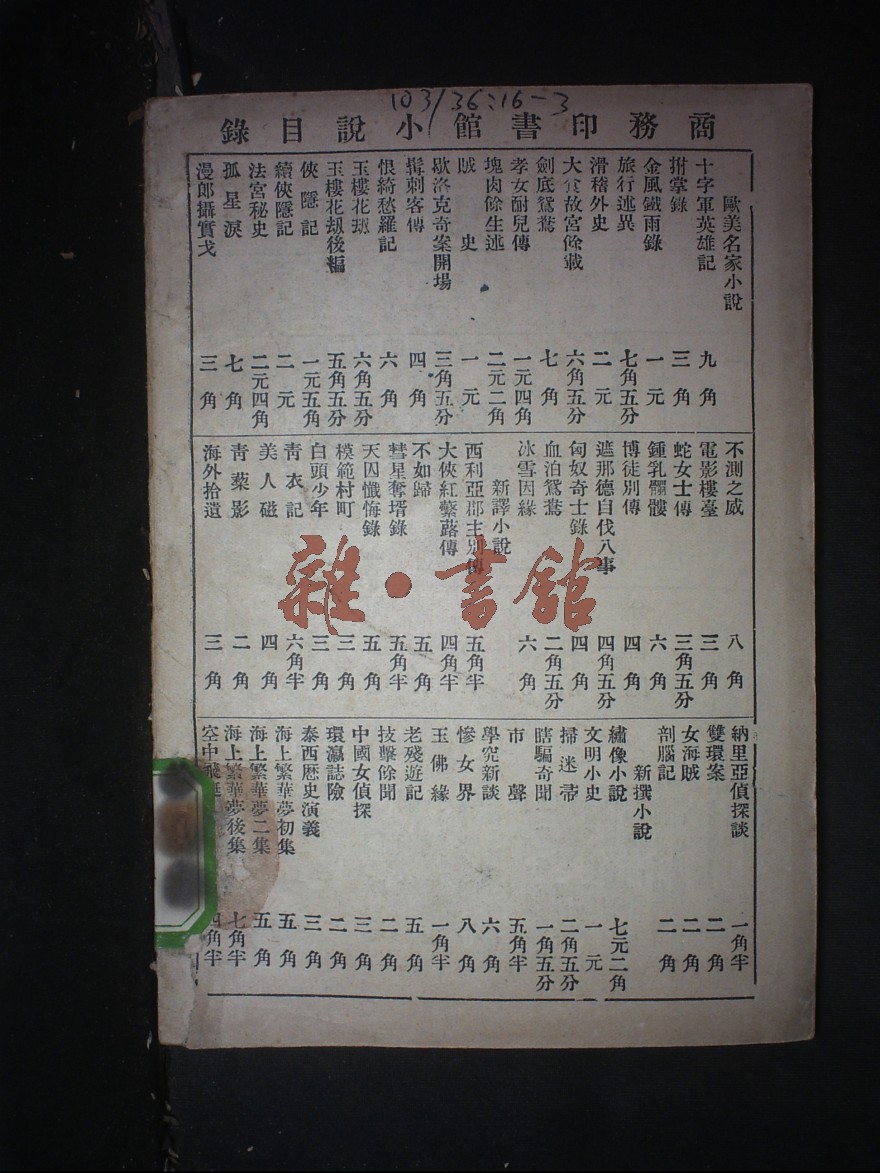 103/36:16-3
商務印書館小說目錄
歐美名家小說
十字軍英雄記 九角
拊掌錄 三角
金風鐵雨錄 一元
旅行述異 七角五分
滑稽外史 二元
大食故宮餘載 六角五分
劍底鴛鴦 七角
孝女耐兒傳 一元四角
塊肉餘生述 二元二角
賊史 一元
歇洛克奇案開場 三角五分
髯刺客傳 四角
恨綺愁羅記 六角
玉樓花刼 六角五分
玉樓花刼後編 五角五分
俠隱記 一元五角
續俠隱記 二元
法宮秘史 二元四角
孤星淚 七角
漫郎攝實戈 三角
不測之威 八角
電影樓臺 三角
蛇女士傳 三角五分
鍾乳髑髏 六角
博徒別傳 四角
遮那德自伐八事 四角五分
匈奴奇士錄 四角
血泊鴛鴦 二角五分
冰雪因緣 六角
新譯小說
西利亞郡主別傳 五角半
大俠紅蘩蕗傳 四角半
不如歸 五角
彗星奪壻錄 五角半
天囚懺悔錄 五角
模範村町 三角
白頭少年 三角
青衣記 六角半
美人磁 四角
青蔾影 二角
海外拾遺 三角
納里亞偵探談 一角半
雙環案 二角
女海賊 二角
剖腦記 二角
新撰小說
繡像小說 七元二角
文明小史 一元
掃迷帚 二角五分
瞎騙奇聞 一角五分
市聲 五角半
學究新談 六角
慘女界 八角
玉佛緣 一角半
老殘遊記 五角
技擊餘聞 二角
中國女偵探 三角
環瀛誌險 二角
泰西歷史演義 三角
海上繁華夢初集 五角
海上繁華夢二集 五角
海上繁華夢後集 七角半
空中飛艇 四角半
雜·書館